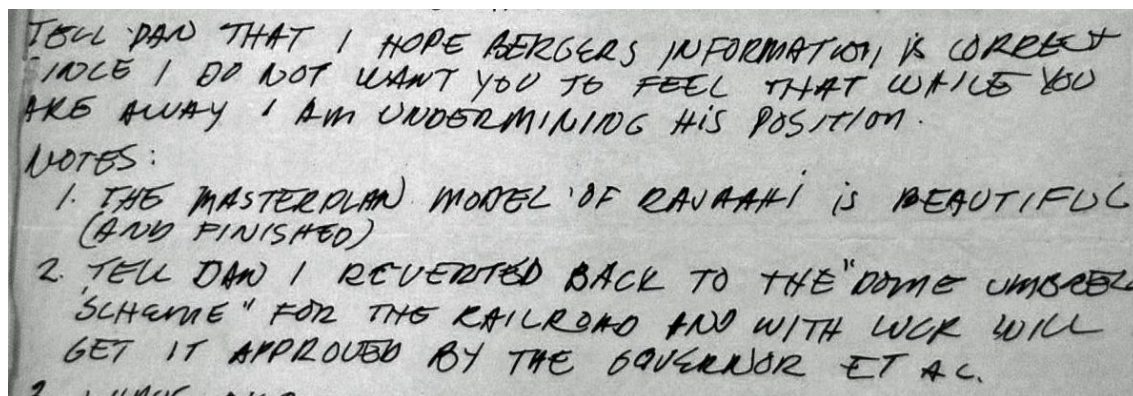 TELL DAN THAT I HOPE BERGERS INFORMATION IS CORRECT
SINCE I DO NOT WANT YOU TO FEEL THAT WHILE YOU
ARE AWAY I AM UNDERMINING HIS POSITION.
NOTES:
1. THE MASTERPLAN MODEL OF RAJAAHI is BEAUTIFUL
(AND FINISHED)
2. TELL DAN I REVERTED BACK TO THE "DOME UMBREL
SCHEME" FOR THE RAILROAD AND WITH WCR WILL
GET IT APPROVED BY THE GOVERNOR ET AL.
3. I HAVE